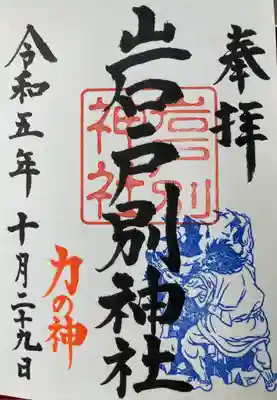 奉拝
岩戸別神社
岩戸別
神社
力の神
令和五年 十月二十九日